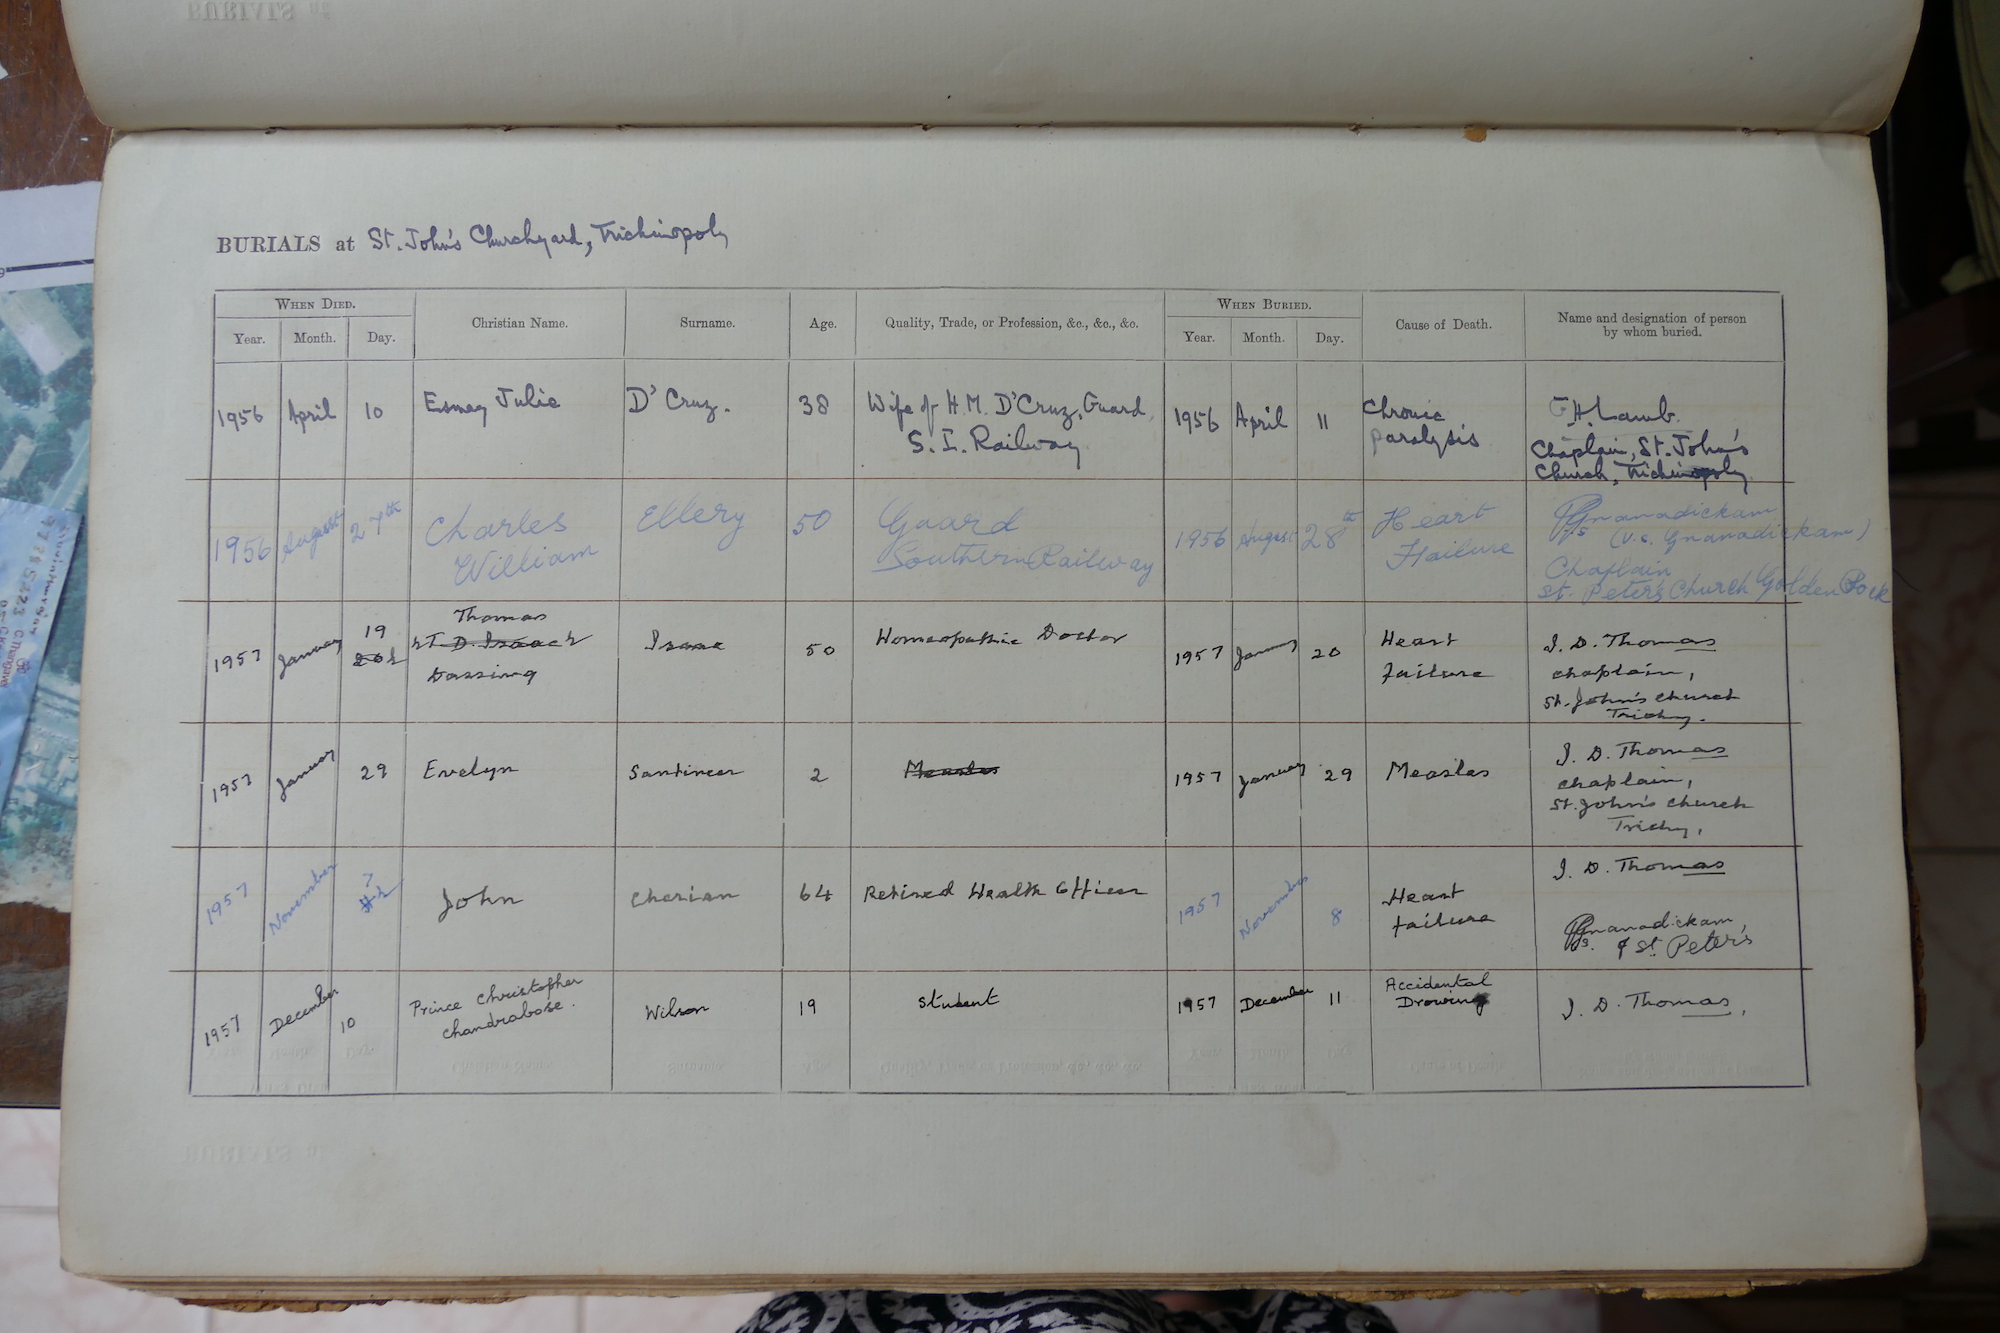 BURIALS at St. John's Churchyard, Trichinopoly
WHEN DIED.
Year. Month. Day.
Christian Name.
Surname.
Age.
Quality, Trade, or Profession, &c., &c., &c.
WHEN BURIED.
Year. Month. Day.
Cause of Death.
Name and designation of person
by whom buried.
1956 April 10
Esmey Julie
D'Cruz.
38
Wife of H. M. D'Cruz, Guard,
S. I. Railway
1956 April 11
Chronic
paralysis
H. Lamb
Chaplain, St. John's
Church, Trichinopoly
1956 August 27th
Charles
William
Ellery
50
Guard
Southern Railway
1956 August 28th
Heart
Failure
Gnanadickam
(V.S. Gnanadickam)
Chaplain
St. Peter's Church Golden Rock
1957 January 19
Thomas
Dassing
Isaac
50
Homeopathic Doctor
1957 January 20
Heart
failure
J. D. Thomas
chaplain,
St. John's church
Trichy.
1957 January 29
Evelyn
Santineer
2
Measles
1957 January 29
Measles
J. D. Thomas
chaplain,
St. John's church
Trichy,
1957 November 7
John
Cherian
64
Retired Health Officer
1957 November 8
Heart
failure
J. D. Thomas
Gnanadickam
of St. Peter's
1957 December 10
Prince Christopher
Chandrabose.
Wilson
19
Student
1957 December 11
Accidental
Drowing
J. D. Thomas,